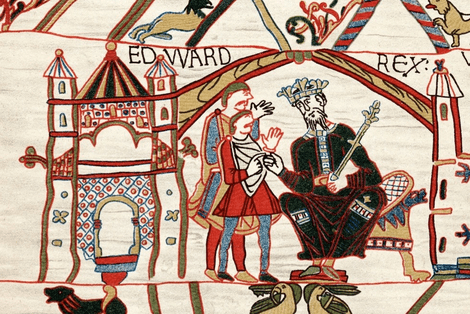 EDWARD REX: V